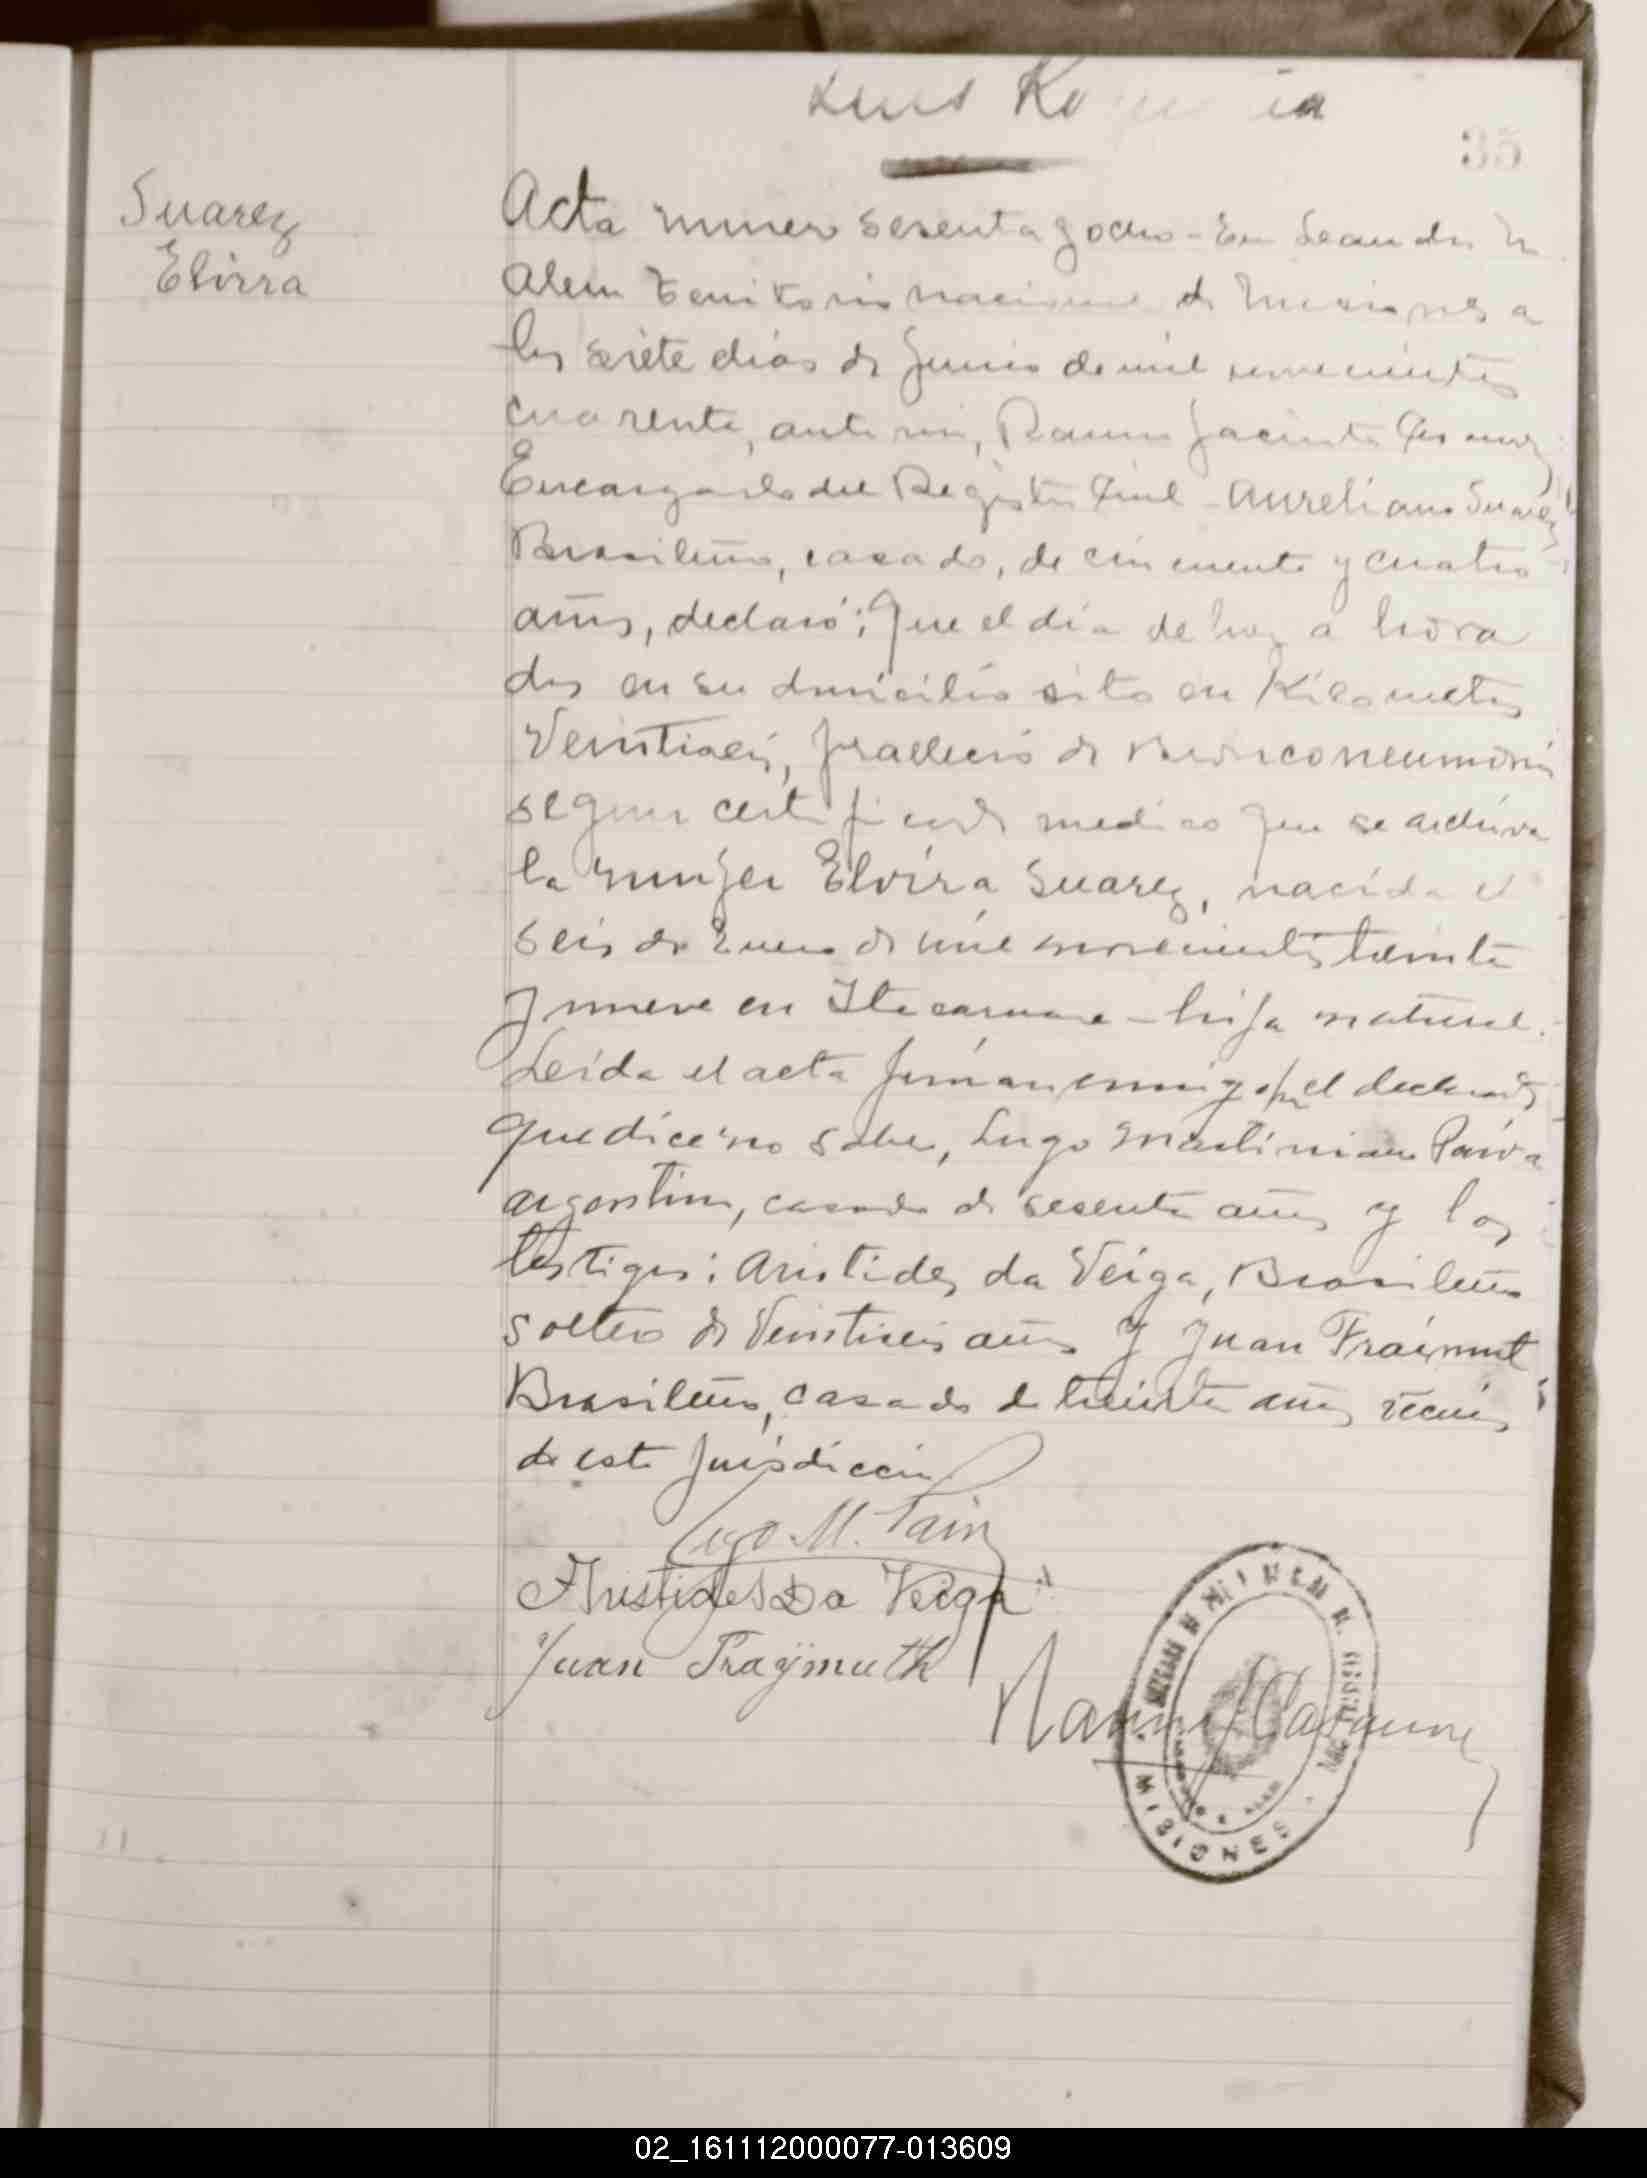 Luis
35
Suarez
Elvira
Acta numero sesenta y ocho - En Leandro N
Alem Territorio nacional de Misiones a
los siete dias de Junio de mil novecientos
cuarenta, ante mi, Ramon Jacinto
Encargado del Registro Civil - Aureliano Suarez
Brasileño, casado, de cincuenta y cuatro
años, declaró: Que el dia de hoy a hora
dos en su domicilio sito en Kilometro
Veintiseis, fallecio de Bronconeumonia
segun certificado medico que se archiva
la mujer Elvira Suarez, nacida el
seis de Enero de mil novecientos treinta
y nueve en Itacaruare - hija natural.
Leida el acta firman conmigo por el declarante
que dice no saber, Lugo Martiniano Paiva
argentino, casado de sesenta años y los
testigos: Aristides da Veiga, Brasileño
soltero de Veintiseis años y Juan Fraimut
Brasileño, casado de treinta años vecinos
de esta jurisdiccion
Lugo M. Paiva
Aristides Da Veiga
Juan Fraÿmuth
Ramon J
MISIONES
02_161112000077-013609